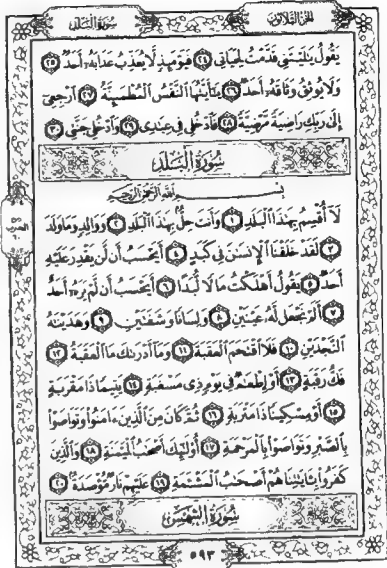 سورة البلد الجزء الثلاثون
يَقُولُ يَٰلَيْتَنِي قَدَّمْتُ لِحَيَاتِي ٢٤ فَيَوْمَئِذٍ لَّا يُعَذِّبُ عَذَابَهُۥٓ أَحَدٌ ٢٥
وَلَا يُوثِقُ وَثَاقَهُۥٓ أَحَدٌ ٢٦ يَٰٓأَيَّتُهَا ٱلنَّفْسُ ٱلْمُطْمَئِنَّةُ ٢٧ ٱرْجِعِىٓ
إِلَىٰ رَبِّكِ رَاضِيَةً مَّرْضِيَّةً ٢٨ فَٱدْخُلِى فِى عِبَٰدِى ٢٩ وَٱدْخُلِى جَنَّتِى ٣٠
سُورَةُ ٱلْبَلَدِ
بِسْمِ ٱللَّهِ ٱلرَّحْمَٰنِ ٱلرَّحِيمِ
لَآ أُقْسِمُ بِهَٰذَا ٱلْبَلَدِ ١ وَأَنتَ حِلٌّۢ بِهَٰذَا ٱلْبَلَدِ ٢ وَوَالِدٍ وَمَا وَلَدَ
٣ لَقَدْ خَلَقْنَا ٱلْإِنسَٰنَ فِى كَبَدٍ ٤ أَيَحْسَبُ أَن لَّن يَقْدِرَ عَلَيْهِ
أَحَدٌ ٥ يَقُولُ أَهْلَكْتُ مَالًا لُّبَدًا ٦ أَيَحْسَبُ أَن لَّمْ يَرَهُۥٓ أَحَدٌ
٧ أَلَمْ نَجْعَل لَّهُۥ عَيْنَيْنِ ٨ وَلِسَانًا وَشَفَتَيْنِ ٩ وَهَدَيْنَٰهُ
ٱلنَّجْدَيْنِ ١٠ فَلَا ٱقْتَحَمَ ٱلْعَقَبَةَ ١١ وَمَآ أَدْرَىٰكَ مَا ٱلْعَقَبَةُ ١٢
فَكُّ رَقَبَةٍ ١٣ أَوْ إِطْعَٰمٌ فِى يَوْمٍ ذِى مَسْغَبَةٍ ١٤ يَتِيمًا ذَا مَقْرَبَةٍ
١٥ أَوْ مِسْكِينًا ذَا مَتْرَبَةٍ ١٦ ثُمَّ كَانَ مِنَ ٱلَّذِينَ ءَامَنُوا۟ وَتَوَاصَوْا۟
بِٱلصَّبْرِ وَتَوَاصَوْا۟ بِٱلْمَرْحَمَةِ ١٧ أُو۟لَٰٓئِكَ أَصْحَٰبُ ٱلْمَيْمَنَةِ ١٨ وَٱلَّذِينَ
كَفَرُوا۟ بِـَٔايَٰتِنَا هُمْ أَصْحَٰبُ ٱلْمَشْـَٔمَةِ ١٩ عَلَيْهِمْ نَارٌ مُّؤْصَدَةٌۢ ٢٠
سُورَةُ ٱلشَّمْسِ
٥٩٣